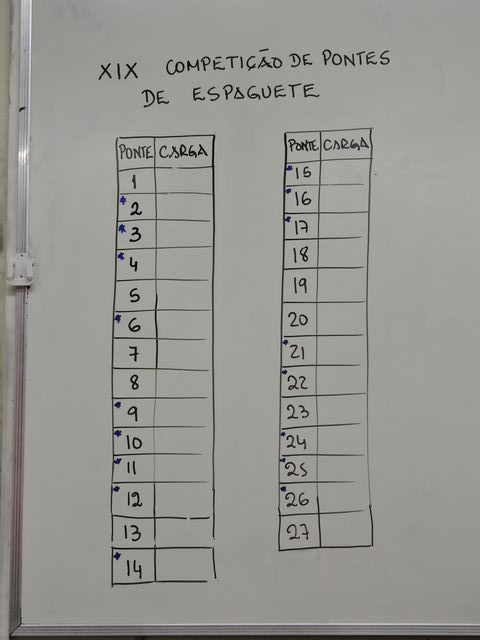 XIX COMPETIÇÃO DE PONTES
DE ESPAGUETE
PONTE CARGA
1
*2
*3
*4
5
*6
7
8
*9
*10
*11
*12
13
*14
PONTE CARGA
*15
*16
*17
18
19
20
*21
*22
23
*24
*25
*26
27